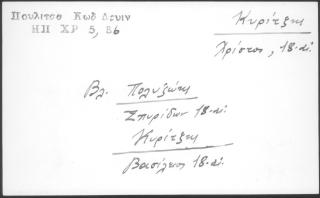 Πουλίτσα Κωδ Λενιν
ΗΠ ΧΡ 5, 86
Κυρίτζης
Χρίστος, 18-αι.
Βλ. Πολυζώης
Σπυρίδων 18-αι.
Κυρίτζης
Βασίλειος 18-αι.